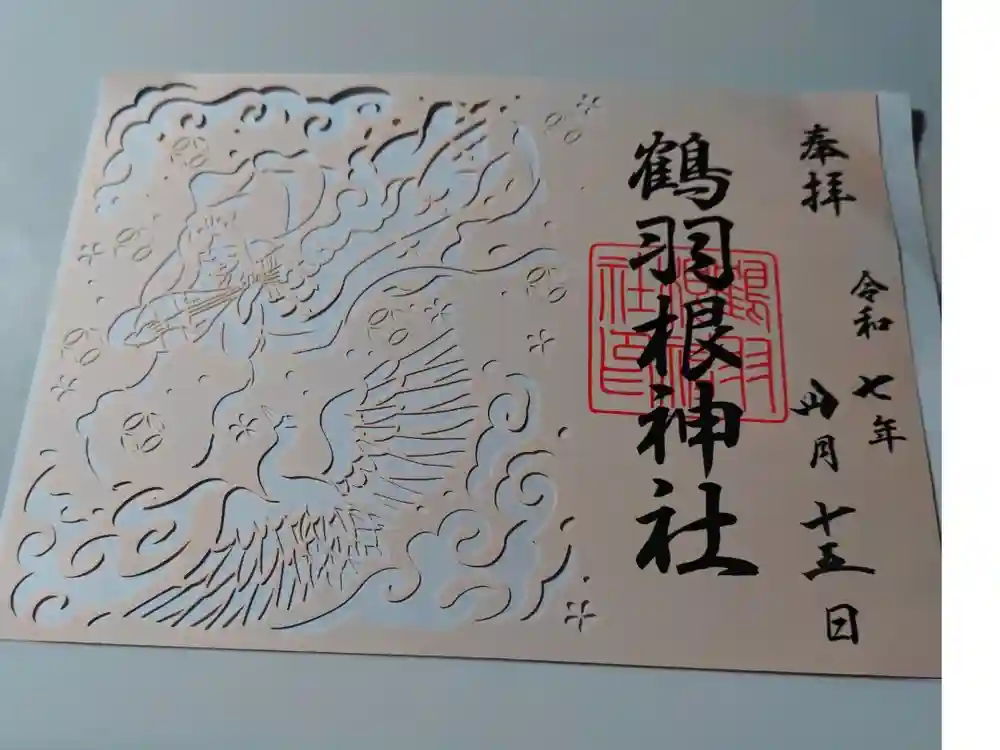 奉拝
令和七年
月十五日
鶴羽根神社
鶴羽
根神
社印